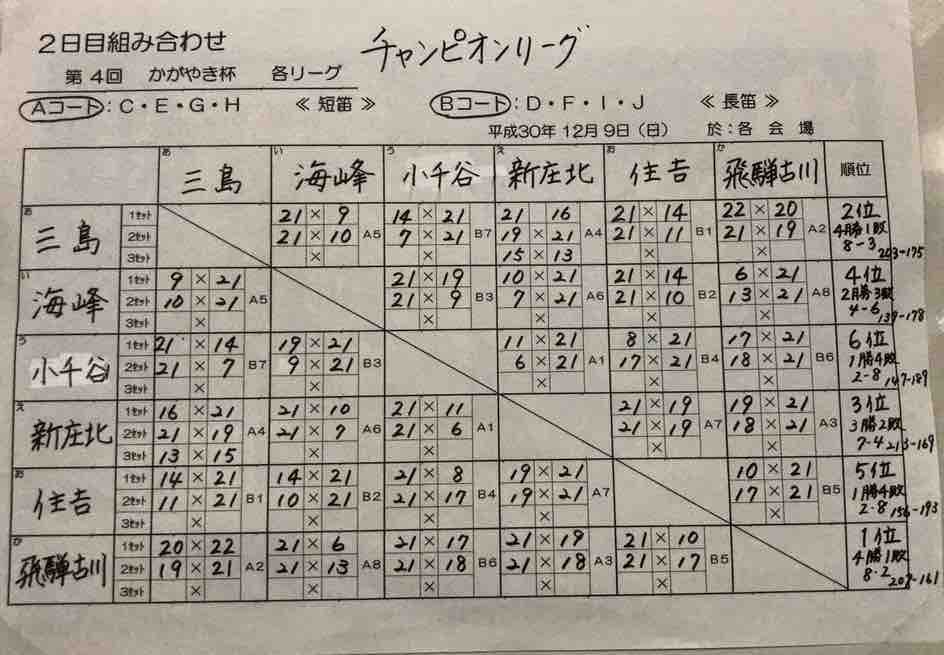 2日目組み合わせ
チャンピオンリーグ
第4回 かがやき杯 各リーグ
Aコート:C・E・G・H ≪ 短笛 ≫ Bコート:D・F・I・J ≪ 長笛 ≫
平成30年 12月 9日(日) 於:各 会 場
あ い う え お か
三島 海峰 小千谷 新庄北 住吉 飛騨古川 順位
あ 三島
1セット 21 × 9 14 × 21 21 16 21 × 14 22 × 20 2位
2セット 21 × 10 A5 7 × 21 B7 19 × 21 A4 21 × 11 B1 21 × 19 A2 4勝1敗
3セット × × 15 × 13 × × 8-3 203-175
い 海峰
1セット 9 × 21 21 × 19 10 × 21 21 × 14 6 × 21 4位
2セット 10 × 21 A5 21 × 9 B3 7 × 21 A6 21 × 10 B2 13 × 21 A8 2勝3敗
3セット × × × × × 4-6 139-178
う 小千谷
1セット 21 × 14 19 × 21 11 × 21 8 × 21 17 × 21 6位
2セット 21 × 7 B7 9 × 21 B3 6 × 21 A1 17 × 21 B4 18 × 21 B6 1勝4敗
3セット × × × × × 2-8 147-189
え 新庄北
1セット 16 × 21 21 × 10 21 × 11 21 × 19 19 × 21 3位
2セット 21 × 19 A4 21 × 7 A6 21 × 6 A1 21 × 19 A7 18 × 21 A3 3勝2敗
3セット 13 × 15 × × × × 7-4 213-169
お 住吉
1セット 14 × 21 14 × 21 21 × 8 19 × 21 10 × 21 5位
2セット 11 × 21 B1 10 × 21 B2 21 × 17 B4 19 × 21 A7 17 × 21 B5 1勝4敗
3セット × × × × × 2-8 156-193
か 飛騨古川
1セット 20 × 22 21 × 6 21 × 17 21 × 19 21 × 10 1位
2セット 19 × 21 A2 21 × 13 A8 21 × 18 B6 21 × 18 A3 21 × 17 B5 4勝1敗
3セット × × × × × 8-2 207-161